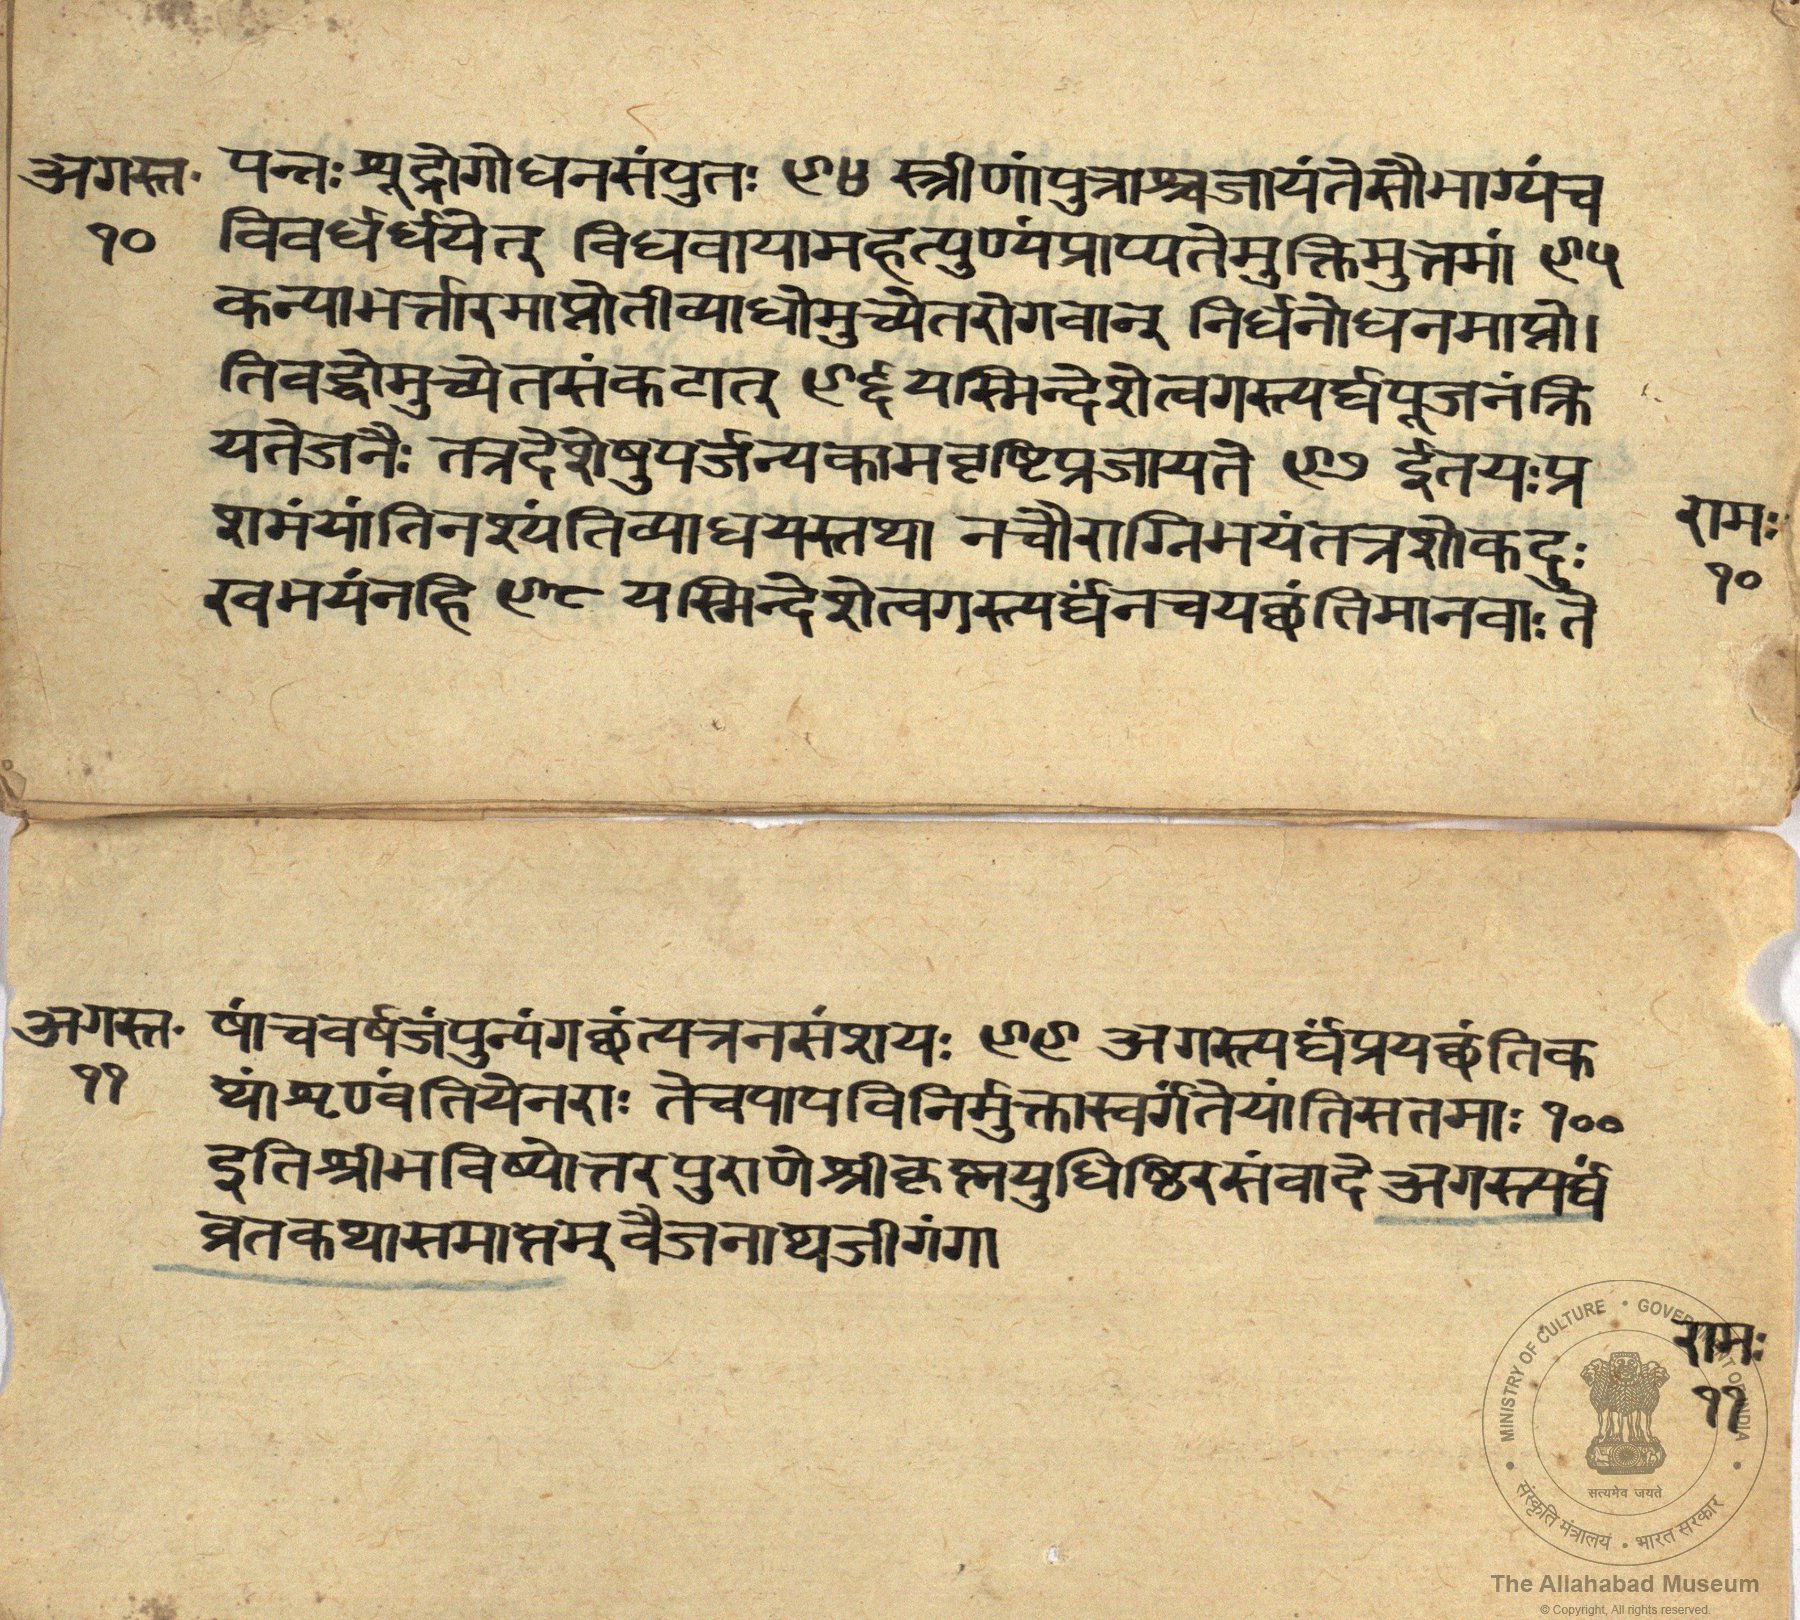 अगस्त॰ पन्तः शूद्रोगोधनसंपुतः ९४ स्त्रीणांपुत्राश्चजायंतेसौभाग्यंच
१० विवर्धर्धयेत् विधवायामहत्पुण्यंप्राप्यतेमुक्तिमुत्तमां ९५
कन्याभर्त्तारमाप्नोतीव्याधोमुच्येतरोगवान् निर्धनोधनमाप्नो।
तिवद्धोमुच्येतसंकटात् ९६ यस्मिन्देशेत्वगस्त्यर्घपूजनंक्रि
यतेजनैः तत्रदेशेषुपर्जन्यकामवृष्टिप्रजायते ९७ ईतयःप्र
शमंयांतिनश्यंतिव्याधयस्तथा नचौराग्निभयंतत्रशोकदुः
खभयंनहि ९८ यस्मिन्देशेत्वगस्त्यर्घंनचयछंतिमानवाः ते
रामः
१०
अगस्त॰ षांचवर्षजंपुन्यंगछंत्यत्रनसंशयः ९९ अगस्त्यर्घंप्रयछंतिक
११ थांशृण्वंतियेनराः तेचपापविनिर्मुक्तास्वर्गंतेयांतिसतमाः १००
इतिश्रीभविष्योत्तरपुराणेश्रीकृष्णयुधिष्ठिरसंवादे अगस्त्यर्घं
व्रतकथासमाप्तम् वैजनाथजीगंगा
रामः
११
MINISTRY OF CULTURE • GOVERNMENT OF INDIA
सत्यमेव जयते
संस्कृति मंत्रालय • भारत सरकार
The Allahabad Museum
© Copyright, All rights reserved.